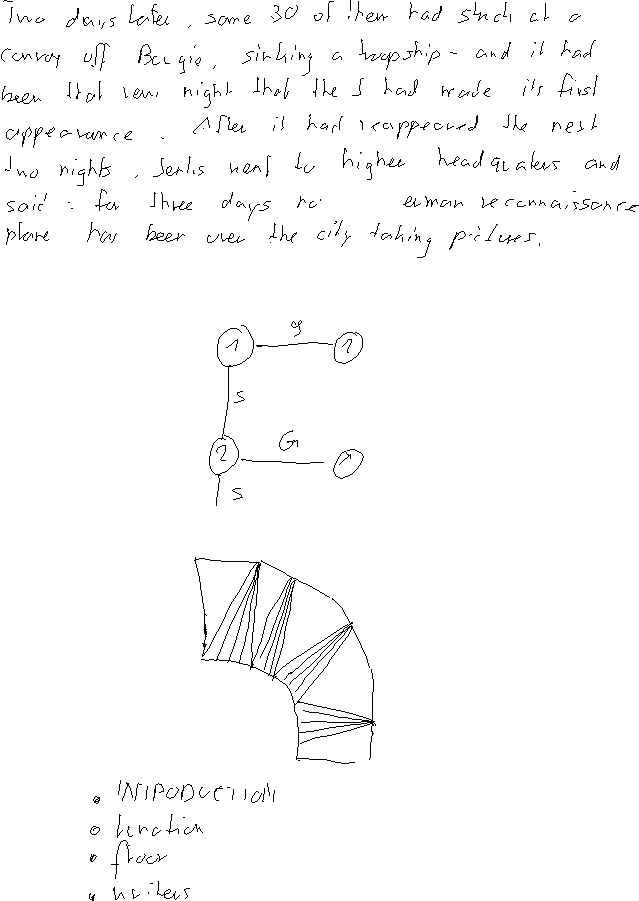 Two days later, some 30 of them had struck at a
convoy off Bougie, sinking a troopship - and it had
been that very night that the I had made its first
appearance. After it had reappeared the next
two nights, Jenks went to higher headquaters and
said: for three days no erman reconnaissance
plane has been over the city taking pictures.
1 g 1
s
2 G 1
s
INTRODUCTION
floor
writers